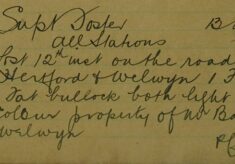 Supt Foster
All Stations
lost 12th met on the road
Hertford & Welwyn 1 F
Fat bullock both light
Colour property of Mr Ba
Welwyn